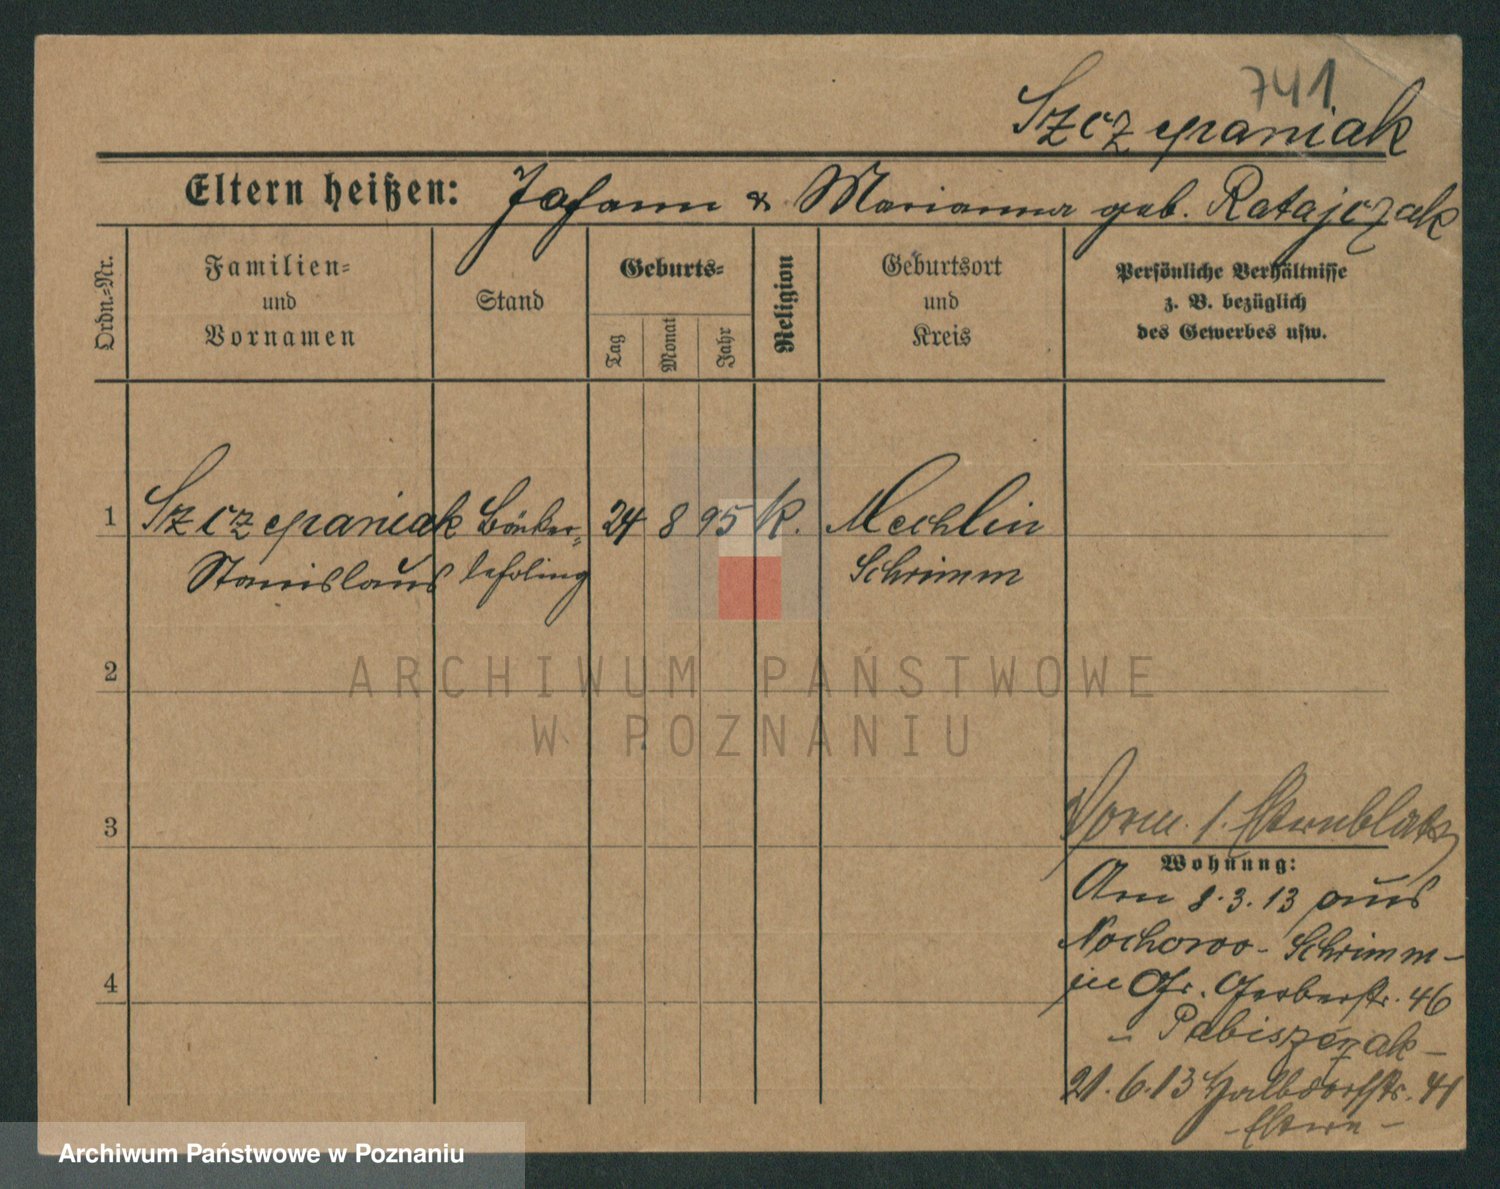 741
Szczepaniak
Eltern heißen: Johann & Marianna geb. Ratajczak
Ordn.=Nr.
Familien=
und
Vornamen
Stand
Geburts=
Tag
Monat
Jahr
Religion
Geburtsort
und
Kreis
Persönliche Verhältnisse
z. B. bezüglich
des Gewerbes usw.
1 Szczepaniak Bäcker= 24 8 95 k. Mechlin
Stanislaus lehrling Schrimm
2
3
4
Vorm. s. Elternblatt
Wohnung:
Am 8.3.13 aus
Nochowo - Schrimm -
in Gr. Gerberstr. 46
Pabiszczak -
21.6.13 Halbdorfstr. 41
- Eltern -
ARCHIWUM PAŃSTWOWE
W POZNANIU
Archiwum Państwowe w Poznaniu